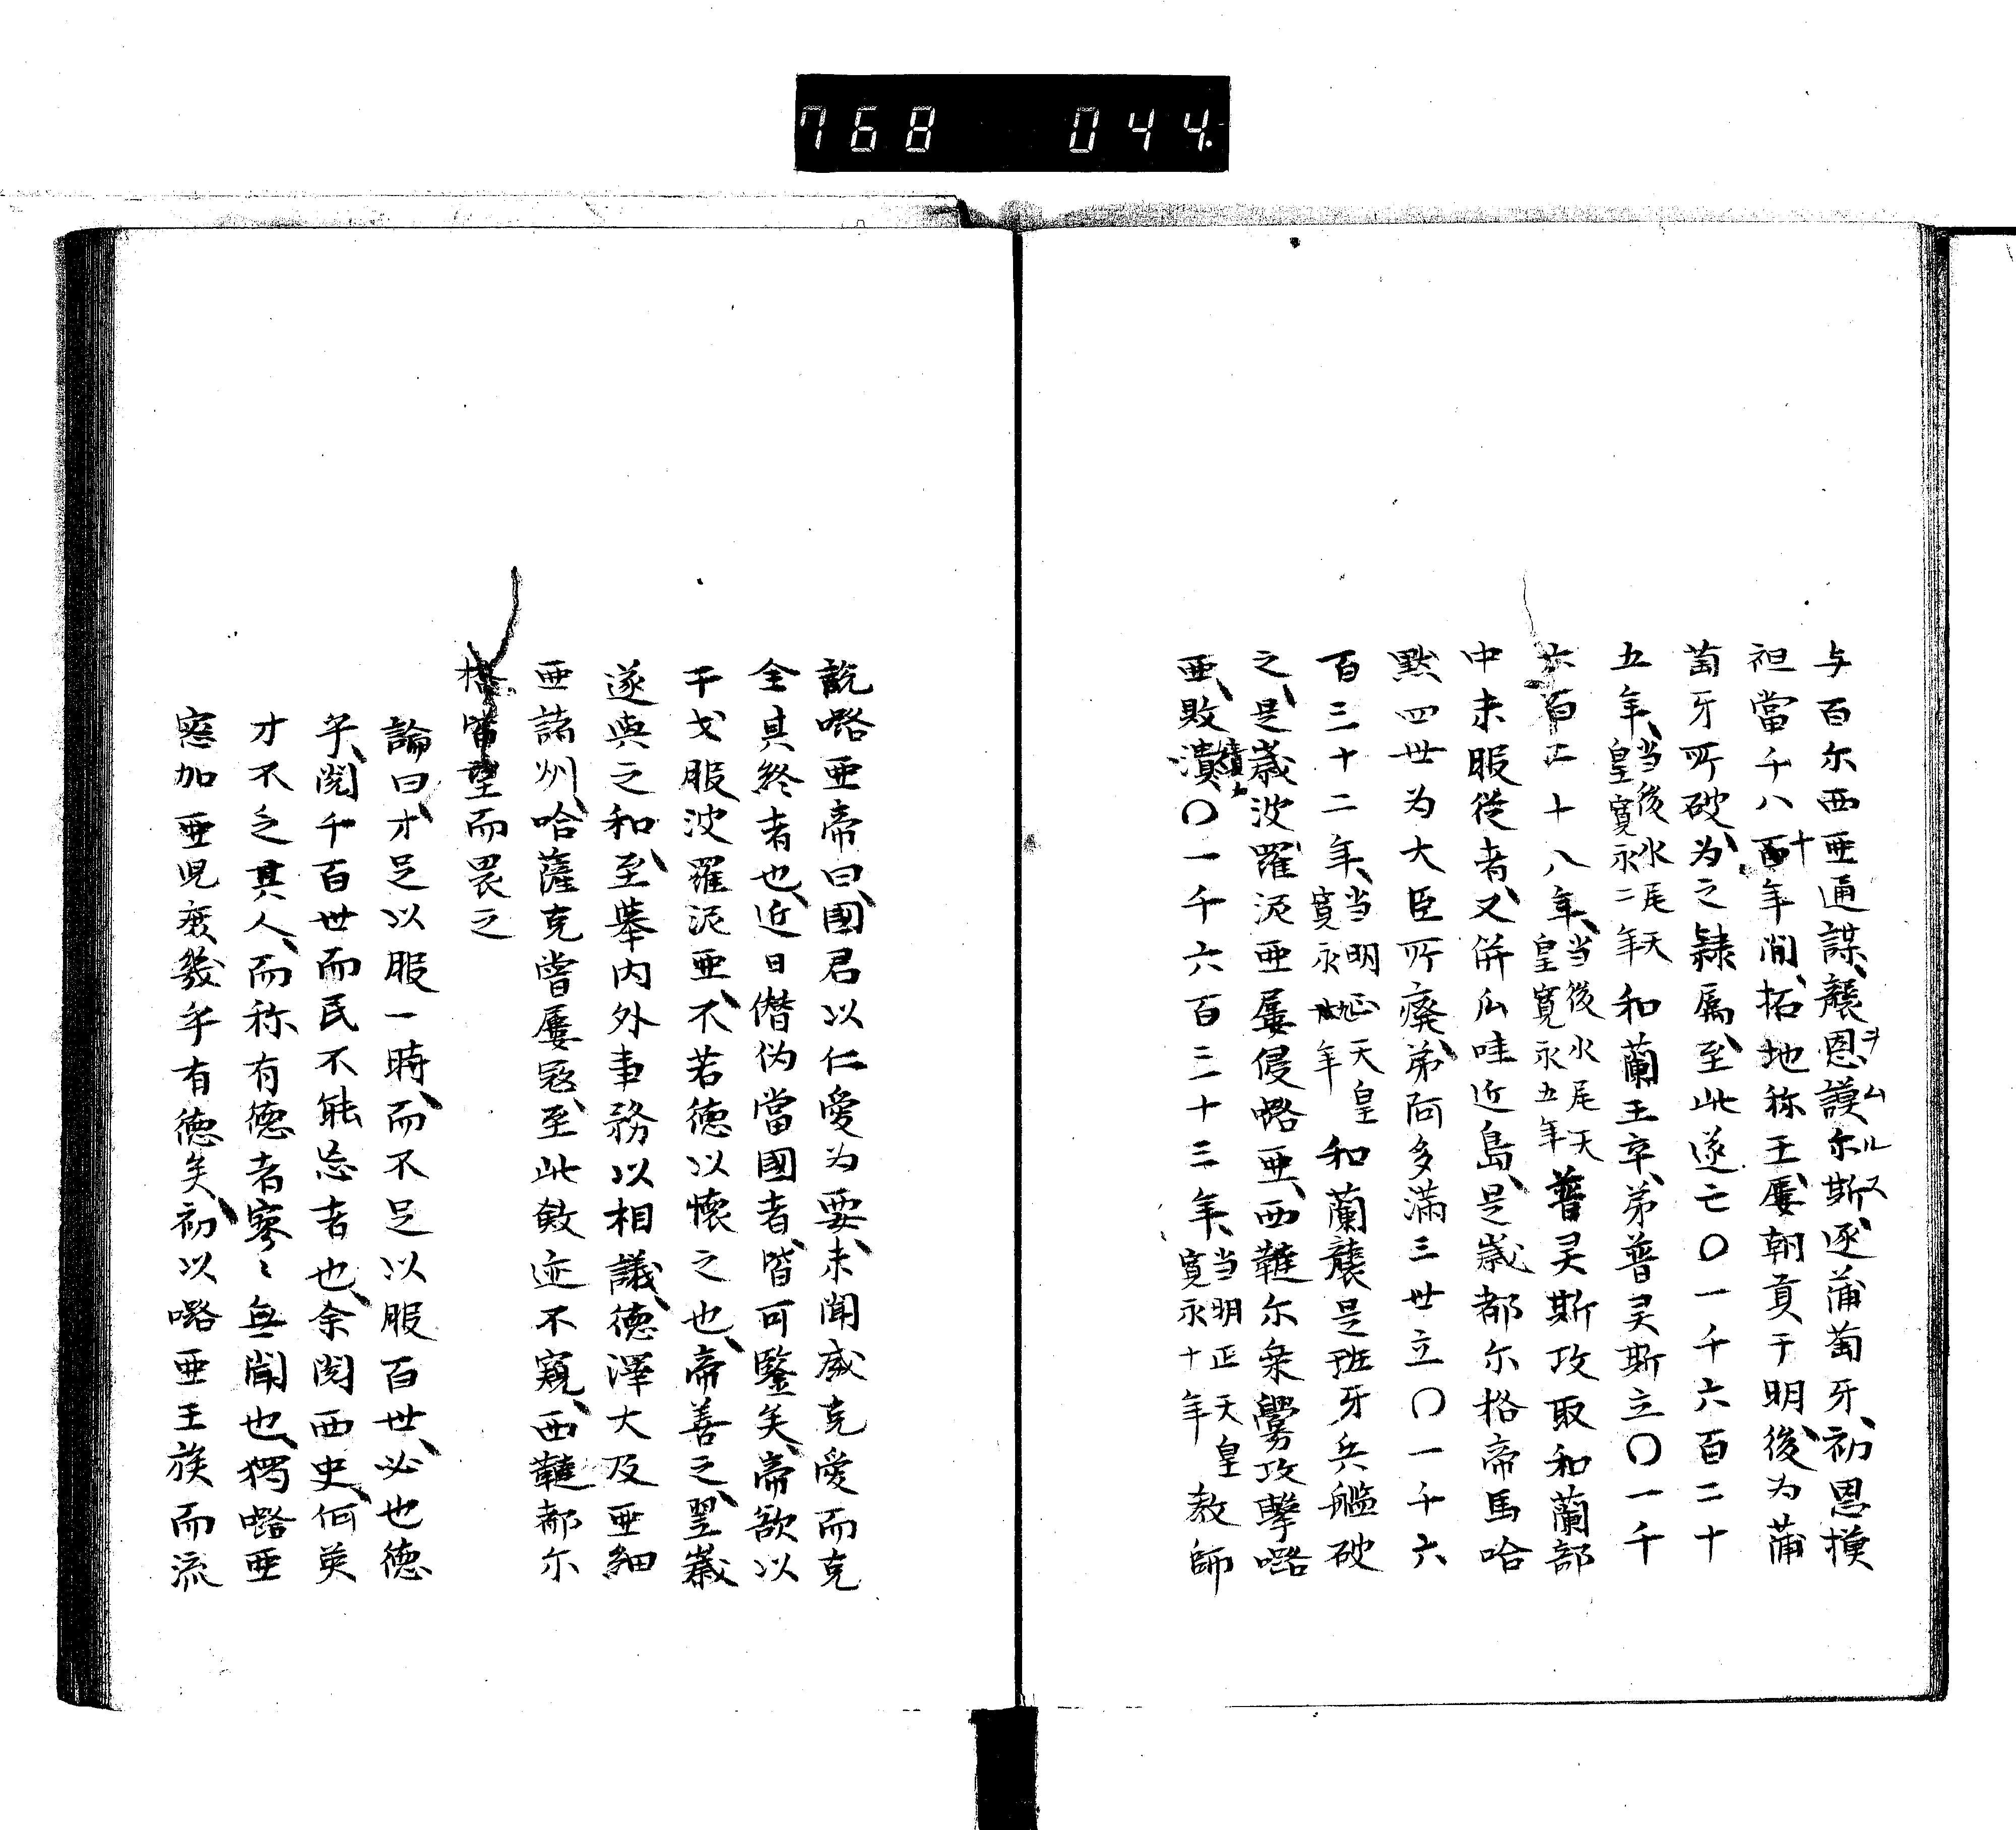 768 044.
与百尓西亜通謀、襲恩謨尓斯、逐蒲萄牙、初恩模
ヲムルス
祖當千八十年間、拓地称王、屢朝貢于明、後为蒲
萄牙所破、为之隷属、至此遂亡〇一千六百二十
五年、当後水尾天皇寛永二年和蘭王卒、弟普灵斯立〇一千
六百二十八年、当後水尾天皇寛永五年普灵斯攻取和蘭部
中未服從者、又併瓜哇近島、是歳都尓格帝馬哈
黙四世为大臣所廃、弟阿多満三世立〇一千六
百三十二年、当明正天皇寛永九年和蘭襲是班牙兵艦破
之、是歳波羅泥亜屢侵𡀔亜、西韃尓衆釁攻撃𡀔
亜、敗潰〇一千六百三十三年、当明正天皇寛永十年教師
説𡀔亜帝曰、國君以仁愛为要、未聞威克愛而克
全其終者也、近日僭伪當國者、皆可鑒矣、帝欲以
干戈服波羅泥亜、不若徳以懐之也、帝善之、翌歳
遂與之和、至擧内外事務以相議、徳澤大及亜細
亜諸州、哈薩克嘗屢寇、至此斂迹不窺、西韃都尓
格皆望而畏之
論曰、才足以服一時、而不足以服百世、必也徳
乎、閲千百世而民不能忘者也、余閲西史、何英
才不乏其人、而称有徳者寥〻無聞也、獨𡀔亜
窓加亜児疫幾乎有徳矣、初以𡀔亜王族而流